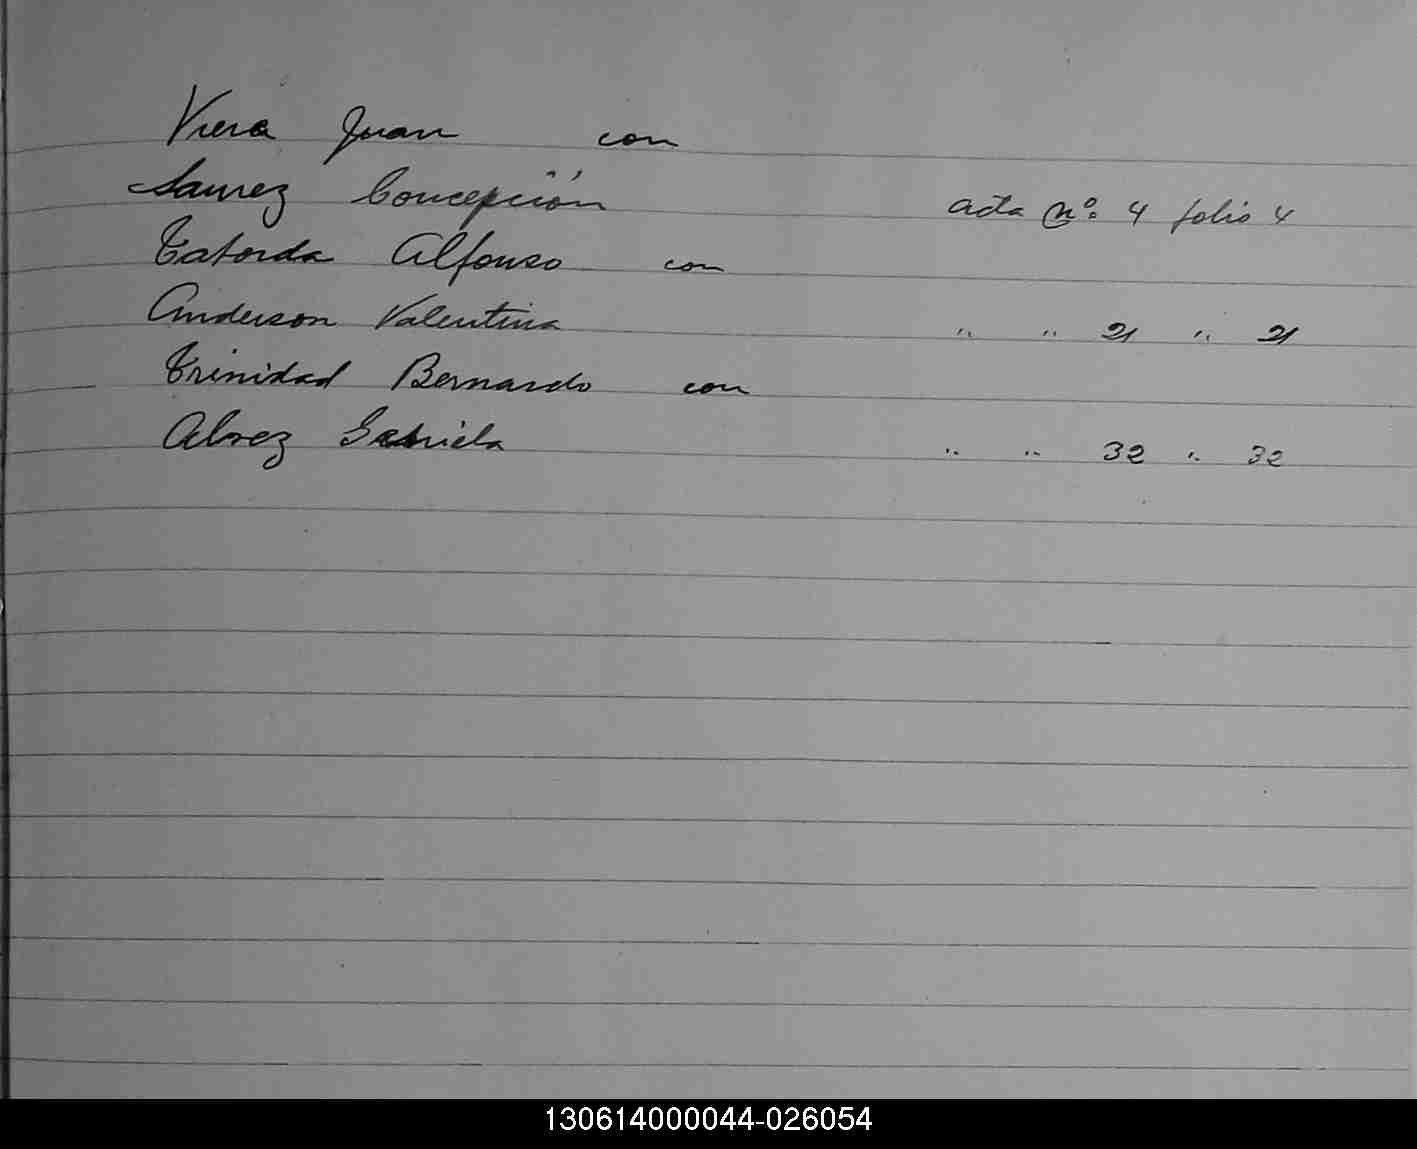 Viera Juan con
Saurez Concepción acta nº. 4 folio 4
Taborda Alfonso con
Anderson Valentina " " 21 " 21
Trinidad Bernardo con
Alvez Gabriela " " 32 " 32
130614000044-026054